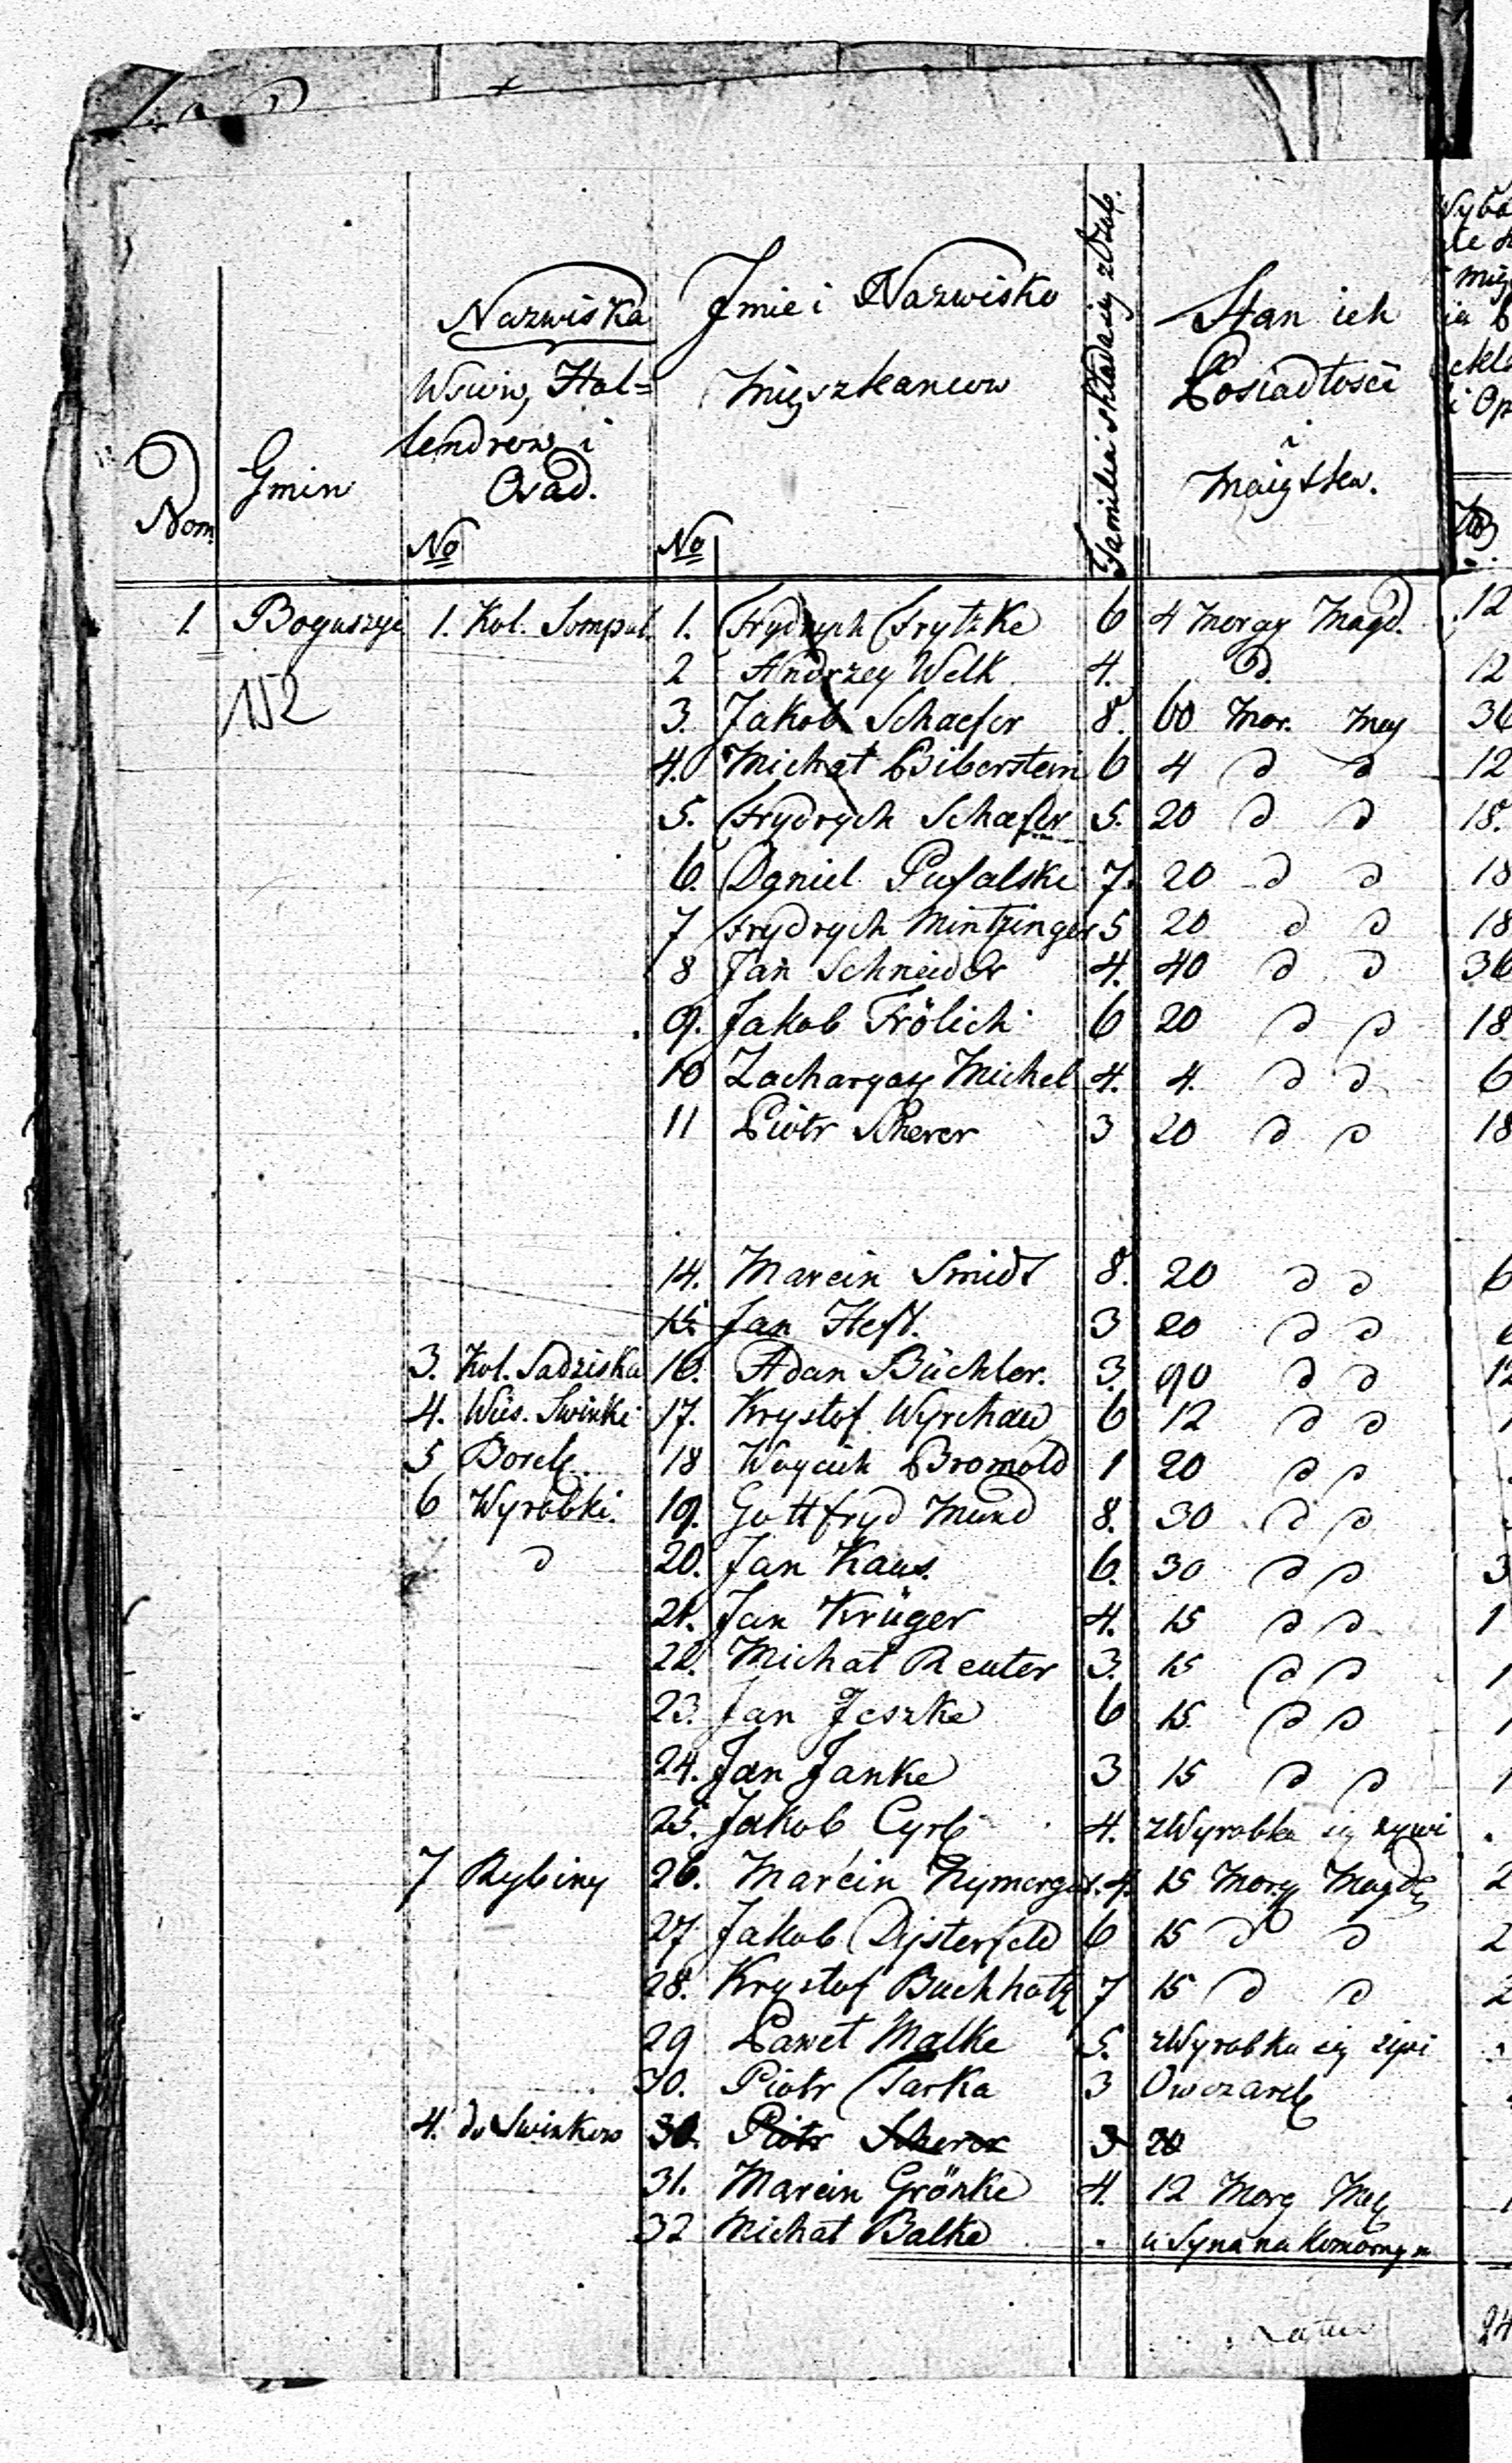 Nom.
Gmin
Nazwiska
Wsiów, Hol=
lendrow i
Osad.
No
Jmie i Nazwisko
Mięszkancow
No
Familia składa się z Osob.
Stan ich
Posiadłości
i
Maiątku.
1. Boguszyce 1. Kol. Sompol. 1. Frydrych Frytzke 6 4 Morgy Magd. 12
152
2 Andrzey Welk 4. d. 12
3. Jakob Schaefer 8. 60 Mor. Mag 36
4. Michał Biberstein 6 4 d d 12
5. Frydrych Schaefer 5. 20 d d 18.
6. Daniel Pufalski 7. 20 d d 18
7 Frydrych Mintzinger 5 20 d d 18
8 Jan Schneider 4. 40 d d 36
9. Jakob Frölich 6 20 d d 18
10 Zacharyasz Michel 4. 4. d d 6
11 Piotr Scherer 3 20 d d 18
14. Marcin Smidt 8. 20 d d 6
15. Jan Heft. 3 20 d d
3. Kol. Sadziska 16. Adam Büchler. 3. 90 d d 12
4. Wies. Swinki 17. Krystof Wyrchaw 6 12 d d
5 Borek 18 Woyciech Bromold 1 20 d d
6 Wyrobki. 19. Gottfryd Mund 8. 30 d d
d 20. Jan Kaus. 6. 30 d d 3
21. Jan Krüger 4. 15 d d 1
22. Michał Reuter 3. 15 d d 1
23. Jan Jeszke 6 15. d d 1
24. Jan Janke 3 15 d d 1
25. Jakob Cyrk 4. z Wyrobku się zywi
7 Rybiny 26. Marcin Nymerger. 4. 15 Morg Magd 2
27 Jakob Dysterfeld 6 15 d d 2
28. Krystof Buchholtz 7 15 d d 2
29 Paweł Malke 5. z Wyrobku się zywi
30. Piotr Tarka 3 Owczarek
4. do Swinkow 30. Piotr Scherer 3 20
31. Marcin Grönke 4. 12 Morg Mag 1
32 Michał Balke . u Syna na Komornym
Latus 24